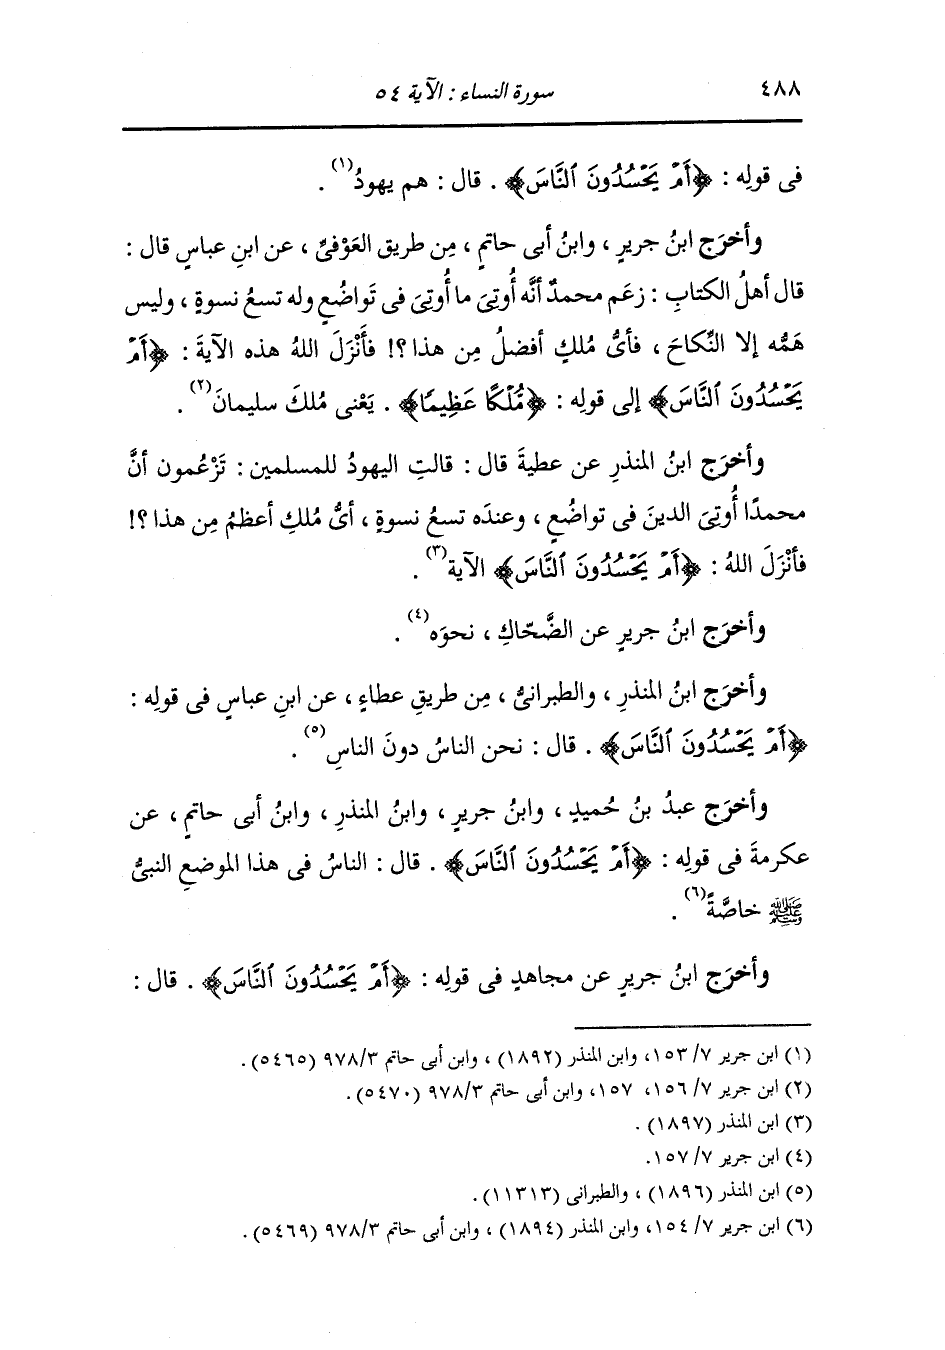 ٤٨٨ سورة النساء : الآية ٥٤
فى قولِه : ﴿أَمْ يَحْسُدُونَ ٱلنَّاسَ﴾ . قال : هم يهودُ(١) .
وأخرَج ابنُ جريرٍ ، وابنُ أبى حاتمٍ ، مِن طريق العَوْفىِّ ، عن ابنِ عباسٍ قال :
قال أهلُ الكتابِ : زعَم محمدٌ أنَّه أُوتِىَ ما أُوتِىَ فى تَواضُعٍ وله تسعُ نسوةٍ ، وليس
هَمُّه إلا النِّكاحَ ، فأىُّ مُلكٍ أفضلُ مِن هذا ؟! فأَنْزَلَ اللهُ هذه الآيةَ : ﴿أَمْ
يَحْسُدُونَ ٱلنَّاسَ﴾ إلى قولِه : ﴿مُّلْكًا عَظِيمًا﴾ . يَعْنى مُلكَ سليمانَ(٢) .
وأخرَج ابنُ المنذرِ عن عطيةَ قال : قالتِ اليهودُ للمسلمين : تَزْعُمون أنَّ
محمدًا أُوتِىَ الدينَ فى تواضُعٍ ، وعندَه تسعُ نسوةٍ ، أىُّ مُلكٍ أعظمُ مِن هذا ؟!
فأنْزَلَ اللهُ : ﴿أَمْ يَحْسُدُونَ ٱلنَّاسَ﴾ الآية(٣) .
وأخرَج ابنُ جريرٍ عن الضَّحّاكِ ، نحوَه(٤) .
وأخرَج ابنُ المنذرِ ، والطبرانىُّ ، مِن طريقِ عطاءٍ ، عن ابنِ عباسٍ فى قولِه :
﴿أَمْ يَحْسُدُونَ ٱلنَّاسَ﴾ . قال : نحن الناسُ دونَ الناسِ(٥) .
وأخرَج عبدُ بنُ حُميدٍ ، وابنُ جريرٍ ، وابنُ المنذرِ ، وابنُ أبى حاتمٍ ، عن
عكرمةَ فى قولِه : ﴿أَمْ يَحْسُدُونَ ٱلنَّاسَ﴾ . قال : الناسُ فى هذا الموضعِ النبىُّ
ﷺ خاصَّةً(٦) .
وأخرَج ابنُ جريرٍ عن مجاهدٍ فى قولِه : ﴿أَمْ يَحْسُدُونَ ٱلنَّاسَ﴾ . قال :
(١) ابن جرير ٧/ ١٥٣، وابن المنذر (١٨٩٢) ، وابن أبى حاتم ٩٧٨/٣ (٥٤٦٥).
(٢) ابن جرير ٧/ ١٥٦، ١٥٧، وابن أبى حاتم ٩٧٨/٣ (٥٤٧٠).
(٣) ابن المنذر (١٨٩٧) .
(٤) ابن جرير ٧/ ١٥٧.
(٥) ابن المنذر (١٨٩٦) ، والطبرانى (١١٣١٣).
(٦) ابن جرير ٧/ ١٥٤، وابن المنذر (١٨٩٤) ، وابن أبى حاتم ٩٧٨/٣ (٥٤٦٩).